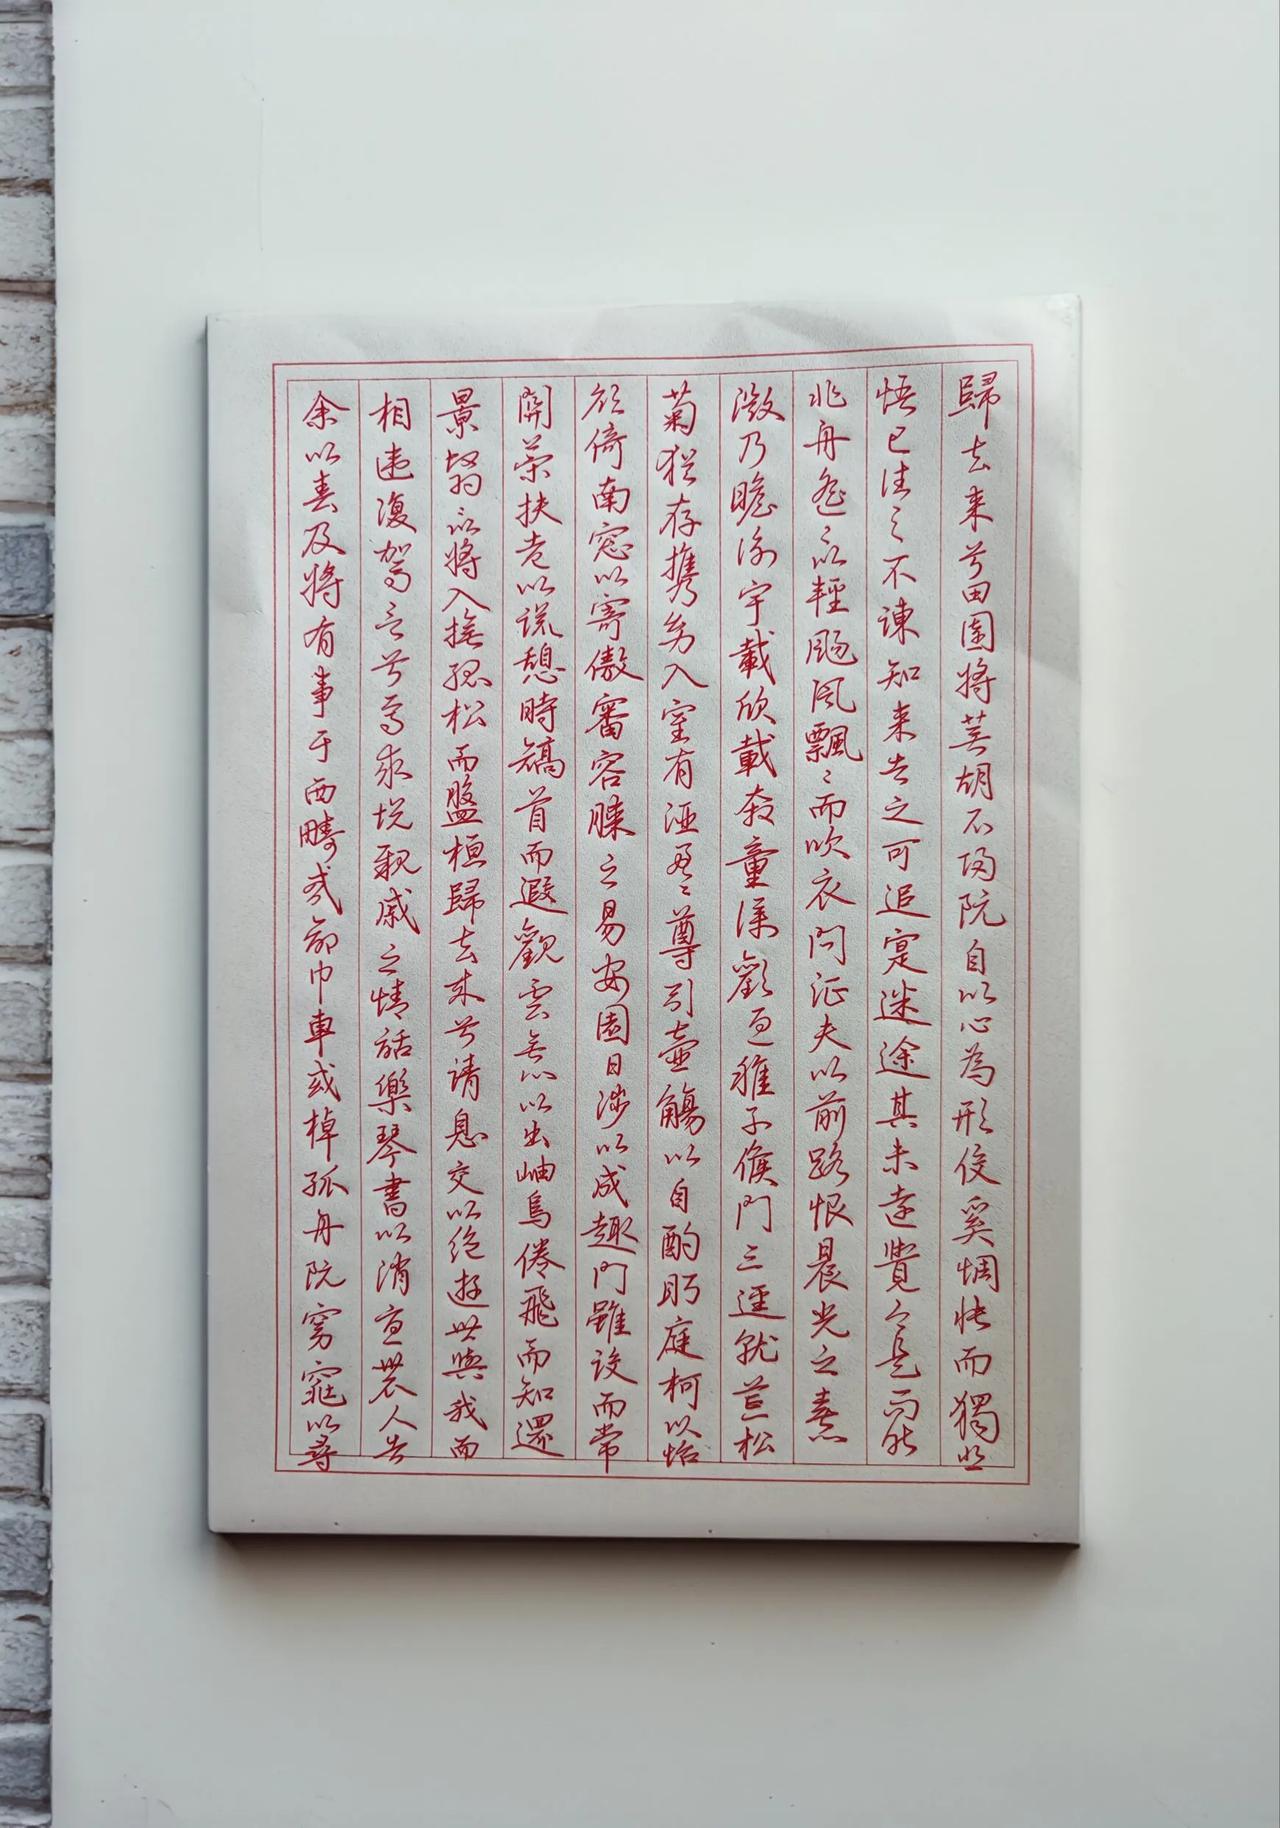 歸去来兮田園將蕪胡不歸既自以心為形役奚惆悵而獨悲
悟已往之不諫知来者之可追寔迷途其未遠覺今是而昨
非舟遙以輕颺風飄〻而吹衣問征夫以前路恨晨光之熹
微乃瞻衡宇載欣載奔童僕歡迎稚子候門三逕就荒松
菊猶存攜幼入室有酒盈〻尊引壺觴以自酌眄庭柯以怡
顏倚南窓以寄傲審容膝之易安園日涉以成趣門雖設而常
關策扶老以流憩時矯首而遐觀雲無心以出岫鳥倦飛而知還
景翳以將入撫孤松而盤桓歸去来兮請息交以絕遊世與我而
相違復駕言兮焉求悅親戚之情話樂琴書以消憂農人告
余以春及將有事于西疇或命巾車或棹孤舟既窈窕以尋